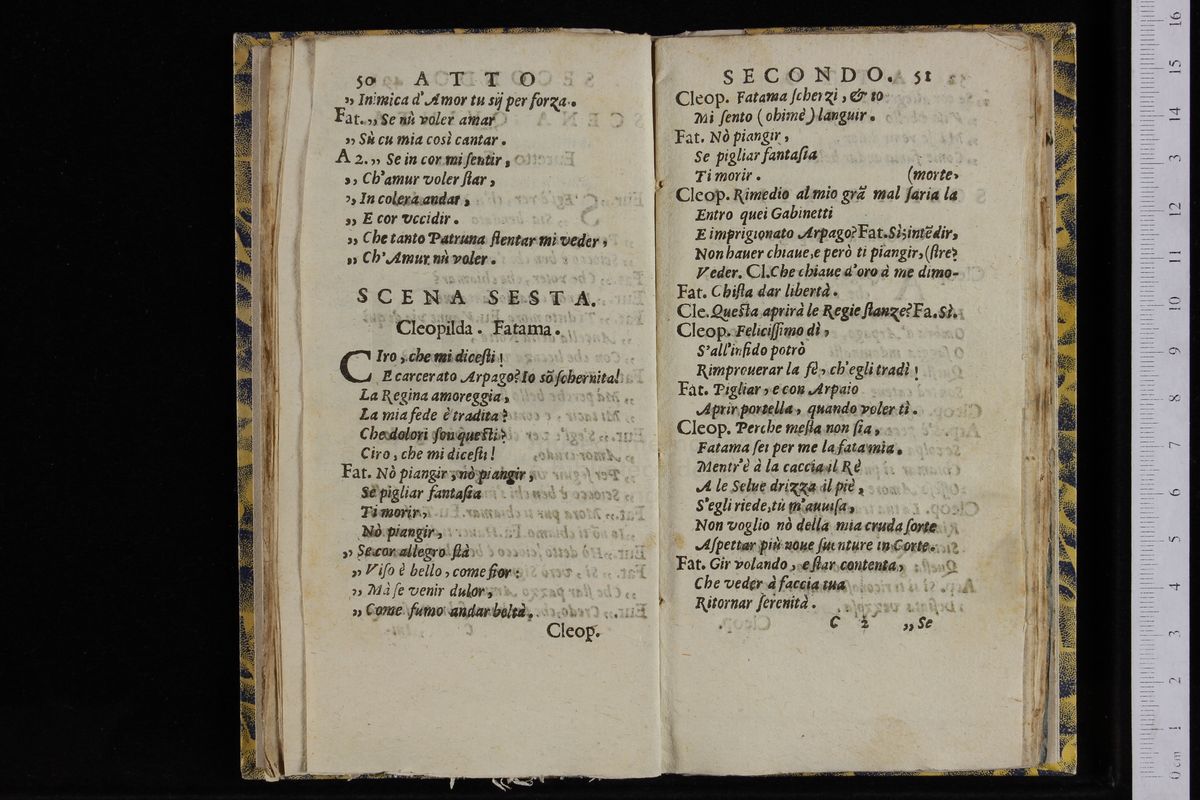 50 ATTO
„ Inimica d'Amor tu sij per forza.
Fat. „ Se nù voler amar
„ Sù cu mia così cantar.
A 2. „ Se in cor mi sentir,
„ Ch'amur voler star,
„ In colera andar,
„ E cor vccidir.
„ Che tanto Patruna stentar mi veder,
„ Ch'Amur nù voler.
SCENA SESTA.
Cleopilda. Fatama.
CIro, che mi dicesti!
E carcerato Arpago? Io sõ schernita!
La Regina amoreggia,
La mia fede è tradita?
Che dolori son questi?
Ciro, che mi dicesti!
Fat. Nò piangir, nò piangir,
Se pigliar fantasia
Ti morir,
Nò piangir,
„ Se cor allegro stà
„ Viso è bello, come fior:
„ Mà se venir dulor,
„ Come fumo andar beltà.
Cleop.
SECONDO. 51
Cleop. Fatama scherzi, & io
Mi sento (ohimè) languir.
Fat. Nò piangir,
Se pigliar fantasia
Ti morir. (morte,
Cleop. Rimedio al mio grã mal saria la
Entro quei Gabinetti
E imprigionato Arpago? Fat. Sì; intẽdir,
Non hauer chiaue, e però ti piangir, (stre?
Veder. Cl. Che chiaue d'oro à me dimo-
Fat. Chista dar libertà.
Cle. Questa aprirà le Regie stanze? Fa. Sì.
Cleop. Felicissimo dì,
S'all'infido potrò
Rimprouerar la fè, ch'egli tradì!
Fat. Pigliar, e con Arpaio
Aprir portella, quando voler tì.
Cleop. Perche mesta non sia,
Fatama sei per me la fata mia.
Mentr'è à la caccia il Rè
A le Selue drizza il piè,
S'egli riede, tù m'auuisa,
Non voglio nò della mia cruda sorte
Aspettar più noue suenture in Corte.
Fat. Gir volando, e star contenta,
Che veder à faccia tua
Ritornar serenità.
C 2 „ Se